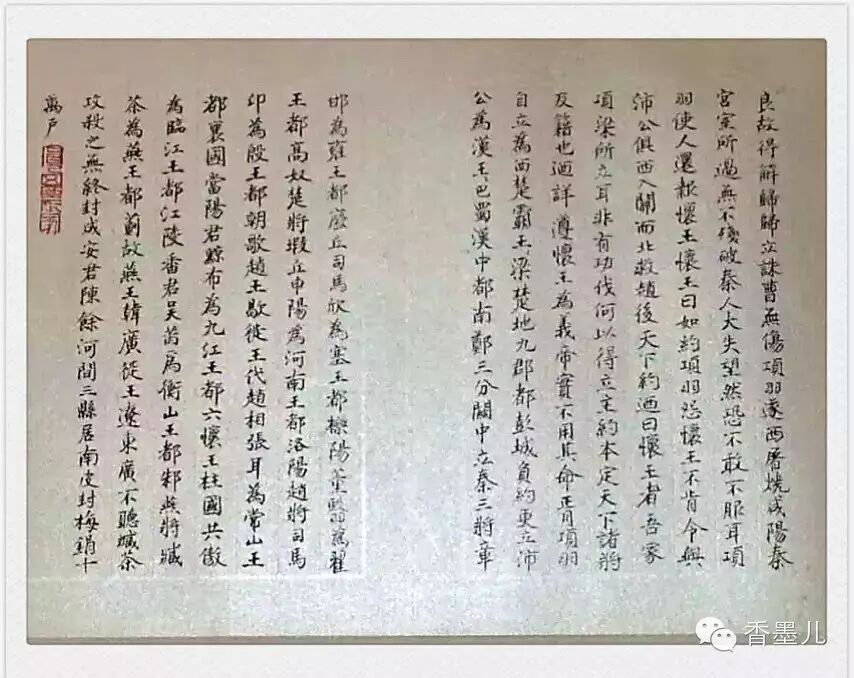 良故得解歸歸立誅曹無傷項羽遂西屠燒咸陽秦
宮室所過無不殘破秦人大失望然恐不敢不服耳項
羽使人還報懷王懷王曰如約項羽怨懷王不肯令與
沛公俱西入關而北救趙後天下約迺曰懷王者吾家
項梁所立耳非有功伐何以得立主約本定天下諸將
及籍也迺詳遵懷王為義帝實不用其命正月項羽
自立為西楚霸王梁楚地九郡都彭城負約更立沛
公為漢王巴蜀漢中都南鄭三分關中立秦三將章
邯為雍王都廢丘司馬欣為塞王都櫟陽董翳為翟
王都高奴楚將瑕丘申陽為河南王都洛陽趙將司馬
卬為殷王都朝歌趙王歇徙王代趙相張耳為常山王
都襄國當陽君黥布為九江王都六懷王柱國共敖
為臨江王都江陵番君吳芮為衡山王都邾燕將臧
荼為燕王都薊故燕王韓廣徙王遼東廣不聽臧荼
攻殺之無終封成安君陳餘河間三縣居南皮封梅鋗十
萬戶
香墨儿